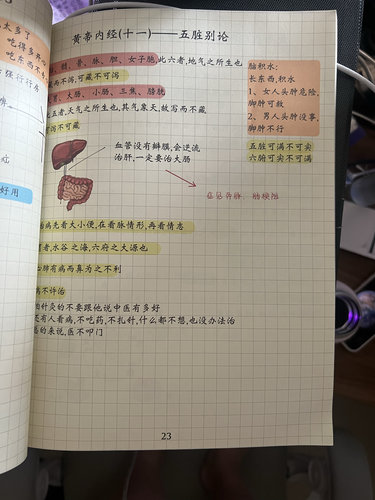 黄帝内经(十一)——五脏别论
髓、骨、脉、胆、女子胞,此六者,地气之所生也
而不泻,可藏不可泻
胃、大肠、小肠、三焦、膀胱
此五者,天气之所生也,其气象天,故泻而不藏
可泻不可藏
脑积水:
长东西,积水
1、女人头肿危险,
脚肿可救
2、男人头肿没事,
脚肿不行
五脏可满不可实
六腑可实不可满
血管没有瓣膜,会逆流
治肝,一定要治大肠
病先看大小便,在看脉情形,再看情志
胃者,水谷之海,六府之大源也
心肺有病而鼻为之不利
病不许治
怕针灸的不要跟他说中医有多好
还有人看病,不吃药,不扎针,什么都不想,也没办法治
的来说,医不叩门
23
太多了
吃得多
吃东西不
强行行房
好用